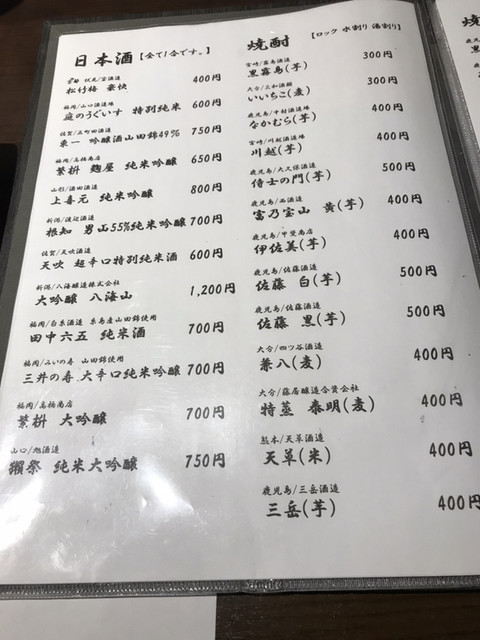 日本酒【全て1合です。】
京都 伏見/宝酒造
松竹梅 豪快 400円
福岡/山口酒造場
庭のうぐいす 特別純米 600円
佐賀/五町田酒造
東一 吟醸酒山田錦49% 750円
福岡/高橋商店
繁桝 麹屋 純米吟醸 650円
山形/酒田酒造
上喜元 純米吟醸 800円
新潟/渡辺酒造
根知 男山55%純米吟醸 700円
佐賀/天吹酒造
天吹 超辛口特別純米酒 600円
新潟/八海醸造株式会社
大吟醸 八海山 1,200円
福岡/白糸酒造 糸島産山田錦使用
田中六五 純米酒 700円
福岡/みいの寿 山田錦使用
三井の寿 大辛口純米吟醸 700円
福岡/高橋商店
繁桝 大吟醸 700円
山口/旭酒造
獺祭 純米大吟醸 750円
焼酎 [ロック 水割り 湯割り]
宮崎/霧島酒造
黒霧島(芋) 300円
大分/三和酒類
いいちこ(麦) 300円
鹿児島/中村酒造場
なかむら(芋) 400円
宮崎/川越酒造場
川越(芋) 400円
鹿児島/大久保酒造
侍士の門(芋) 500円
鹿児島/西酒造
富乃宝山 黄(芋) 400円
鹿児島/甲斐商店
伊佐美(芋) 400円
鹿児島/佐藤酒造
佐藤 白(芋) 500円
鹿児島/佐藤酒造
佐藤 黒(芋) 500円
大分/四ツ谷酒造
兼八(麦) 400円
大分/藤居醸造合資会社
特蒸 泰明(麦) 400円
熊本/天草酒造
天草(米) 400円
鹿児島/三岳酒造
三岳(芋) 400円